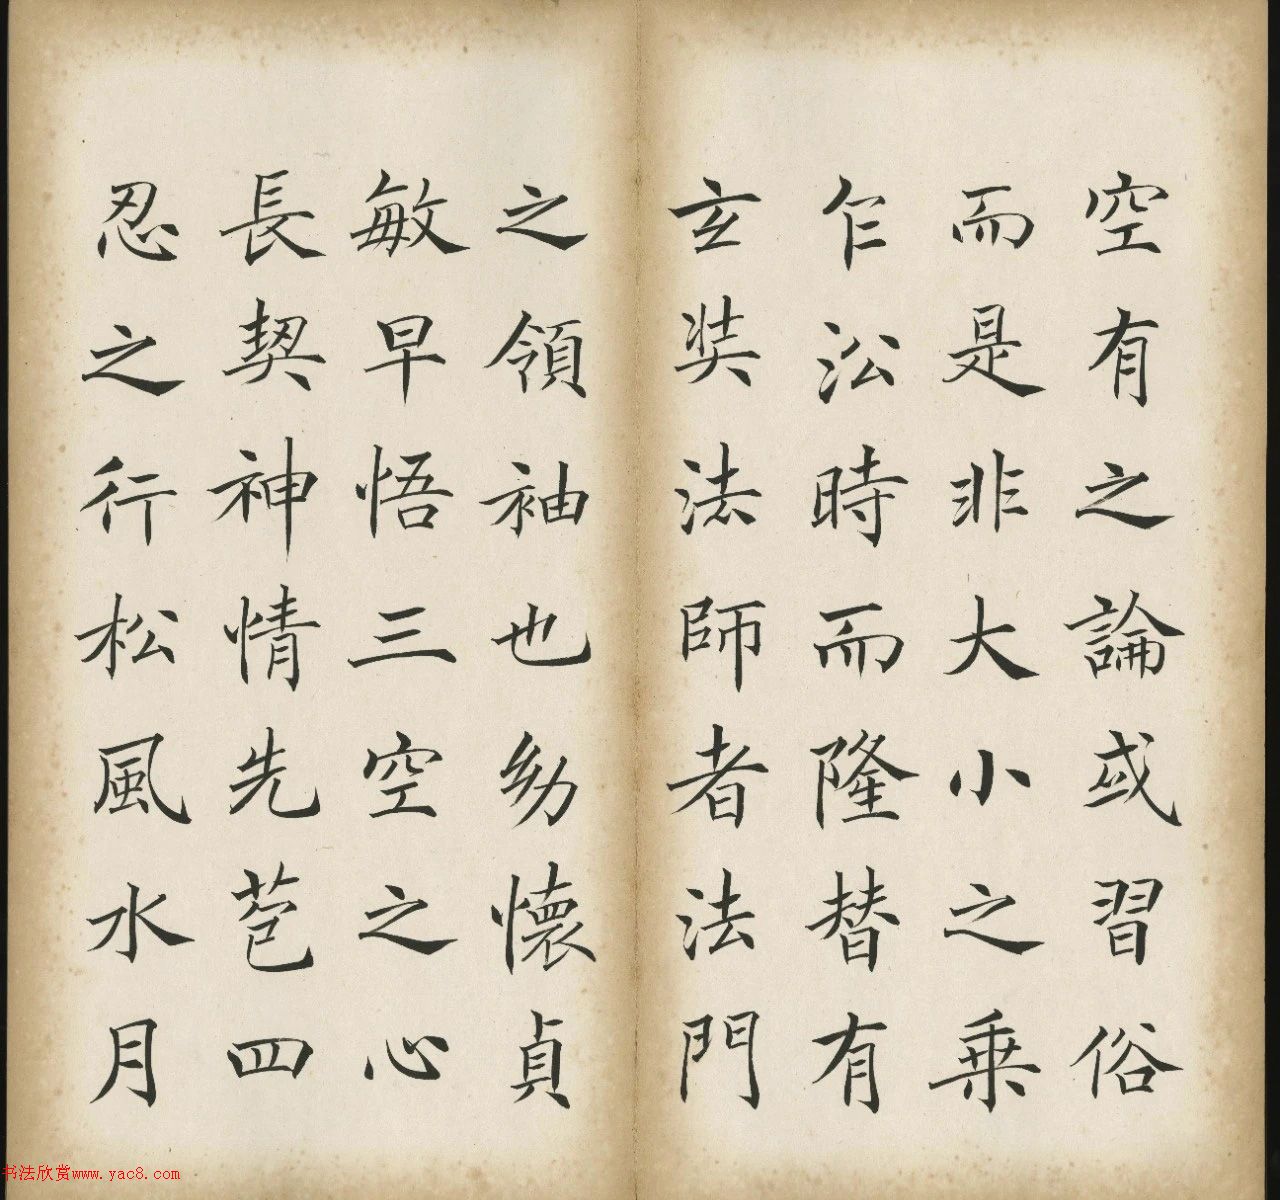 空有之論或習俗
而是非大小之乗
乍沿時而隆替有
玄奘法師者法門
之領袖也幼懷貞
敏早悟三空之心
長契神情先苞四
忍之行松風水月
书法欣赏www.yac8.com